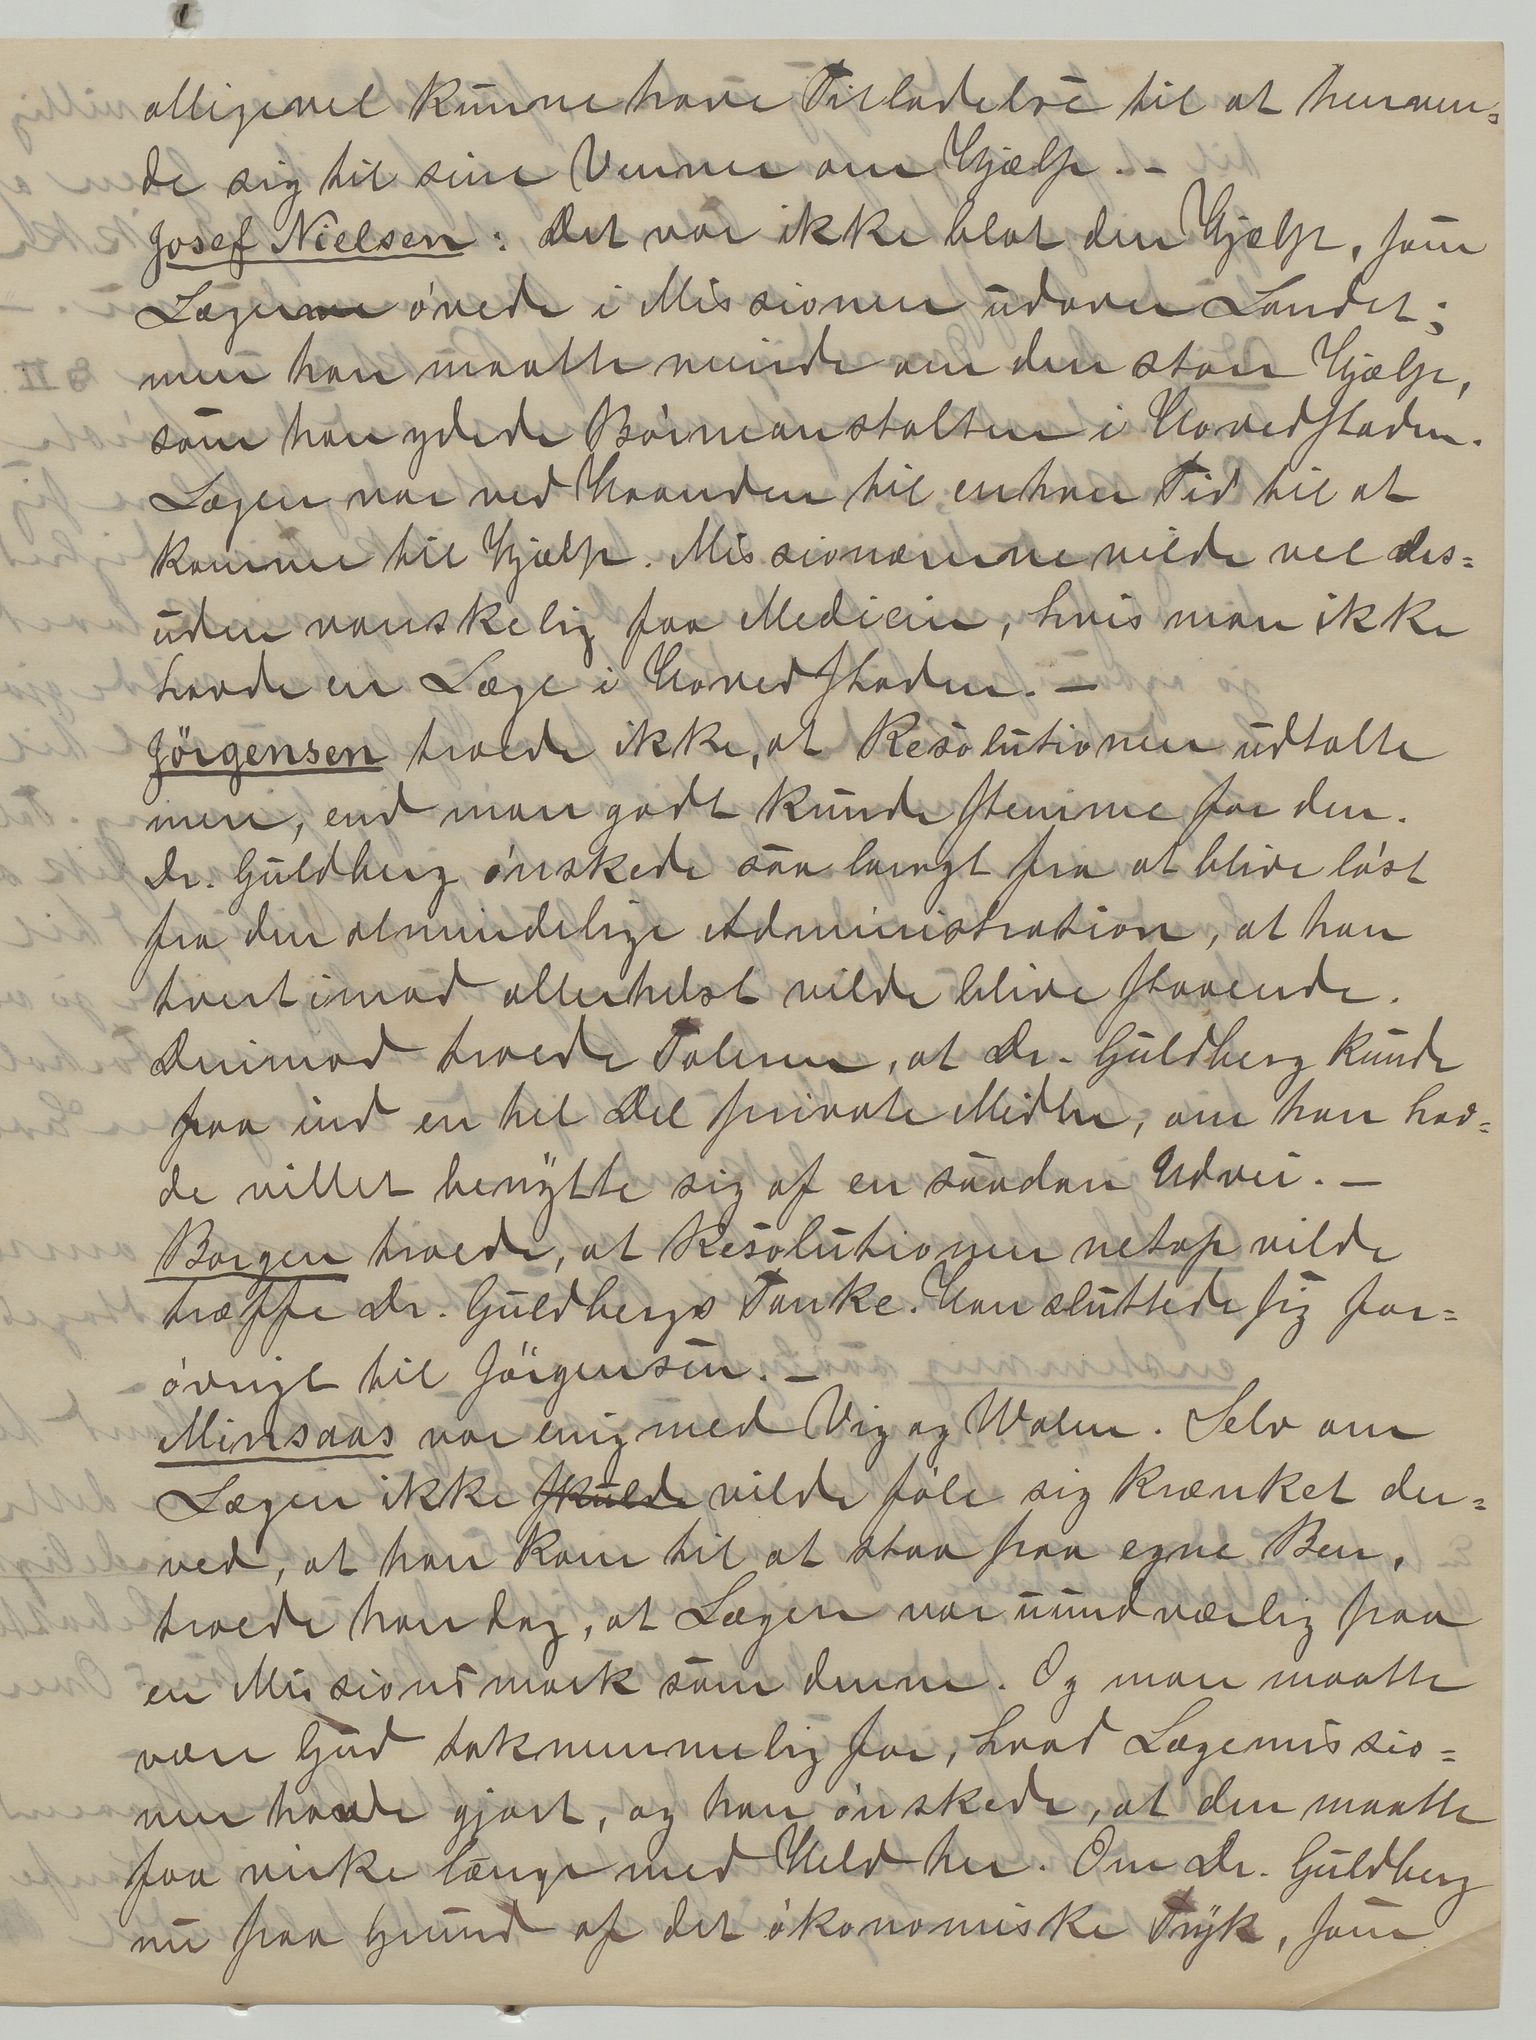 alligevel kunne have Tilladelse til at henven=
de sig til sine Venner om Hjælp. –
Josef Nielsen: Det var ikke blot den Hjælp, som
Lægerne øvede i Missionen udover Landet;
men han maatte minde om den store Hjælp,
som han ydede Børneanstalten i Hovedstaden.
Lægen var ved Haanden til enhver Tid til at
komme til Hjælp. Missionærerne vilde vel des=
uden vanskelig faa Medicin, hvis man ikke
havde en Læge i Hovedstaden. –
Jörgensen troede ikke, at Resolutionen udtalte
mere, end man godt kunde stemme for den.
Dr. Guldberg ønskede saa langt fra at blive løst
fra den almindelige Administration, at han
tvertimod allerhelst vilde blive staaende.
Derimod troede Taleren, at Dr. Guldberg kunde
faa ind en hel Del private Midler, om han hav=
de villet benytte sig af en saadan Udvei. –
Borgen troede, at Resolutionen netop vilde
træffe Dr. Guldbergs Tanke. Han sluttede sig for=
øvrigt til Jörgensen. –
Minsaas var enig med Vig og Walen. Selv om
Lægen ikke skulde vilde føle sig krænket der=
ved, at han kom til at staa paa egne Ben,
troede han dog, at Lægen var uundværlig paa
en Missionsmark som denne. Og man maatte
være Gud taknemmelig for, hvad Lægemissio=
nen havde gjort, og han ønskede, at den maatte
faa virke længe med Held her. Om Dr. Guldberg
nu paa Grund af det økonomiske Tryk, som